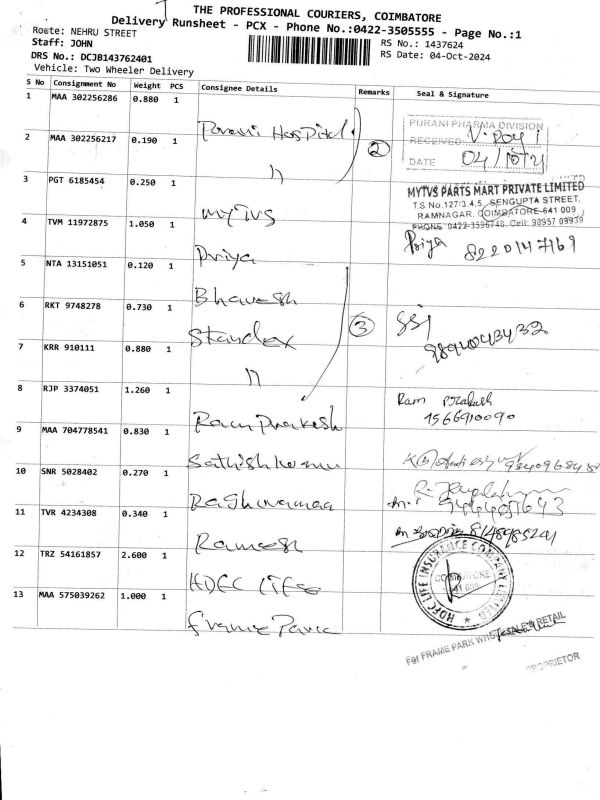 THE PROFESSIONAL COURIERS, COIMBATORE
Delivery Runsheet - PCX - Phone No.:0422-3505555 - Page No.:1
Route: NEHRU STREET
Staff: JOHN
RS No.: 1437624
DRS No.: DCJB143762401
RS Date: 04-Oct-2024
Vehicle: Two Wheeler Delivery
S No Consignment No Weight PCS Consignee Details Remarks Seal & Signature
1 MAA 302256286 0.880 1 Purani Hospital
PURANI PHARMA DIVISION
RECEIVED
DATE 04/10/21
2 MAA 302256217 0.190 1 " 2
3 PGT 6185454 0.250 1 MYTVS
MYTVS PARTS MART PRIVATE LIMITED
T.S No.127/3.4.5, SENGUPTA STREET,
RAMNAGAR, COIMBATORE-641 009
PHONE 0422-3596748. Cell: 98957 09939
4 TVM 11972875 1.050 1 Priya Priya 8220147169
5 NTA 13151051 0.120 1 Bhavesh
6 RKT 9748278 0.730 1 Standex 3
7 KRR 910111 0.880 1 "
8 RJP 3374051 1.260 1 Ram Prakash Ram Prakash
1566910090
9 MAA 704778541 0.830 1 Sathish Kumar
10 SNR 5028402 0.270 1
11 TVR 4234308 0.340 1 Ramesh
12 TRZ 54161857 2.600 1 HDFC Life
HDFC LIFE INSURANCE COMPANY LIMITED
COIMBATORE
13 MAA 575039262 1.000 1 Frame Park
For FRAME PARK WHOLESALE & RETAIL
PROPRIETOR